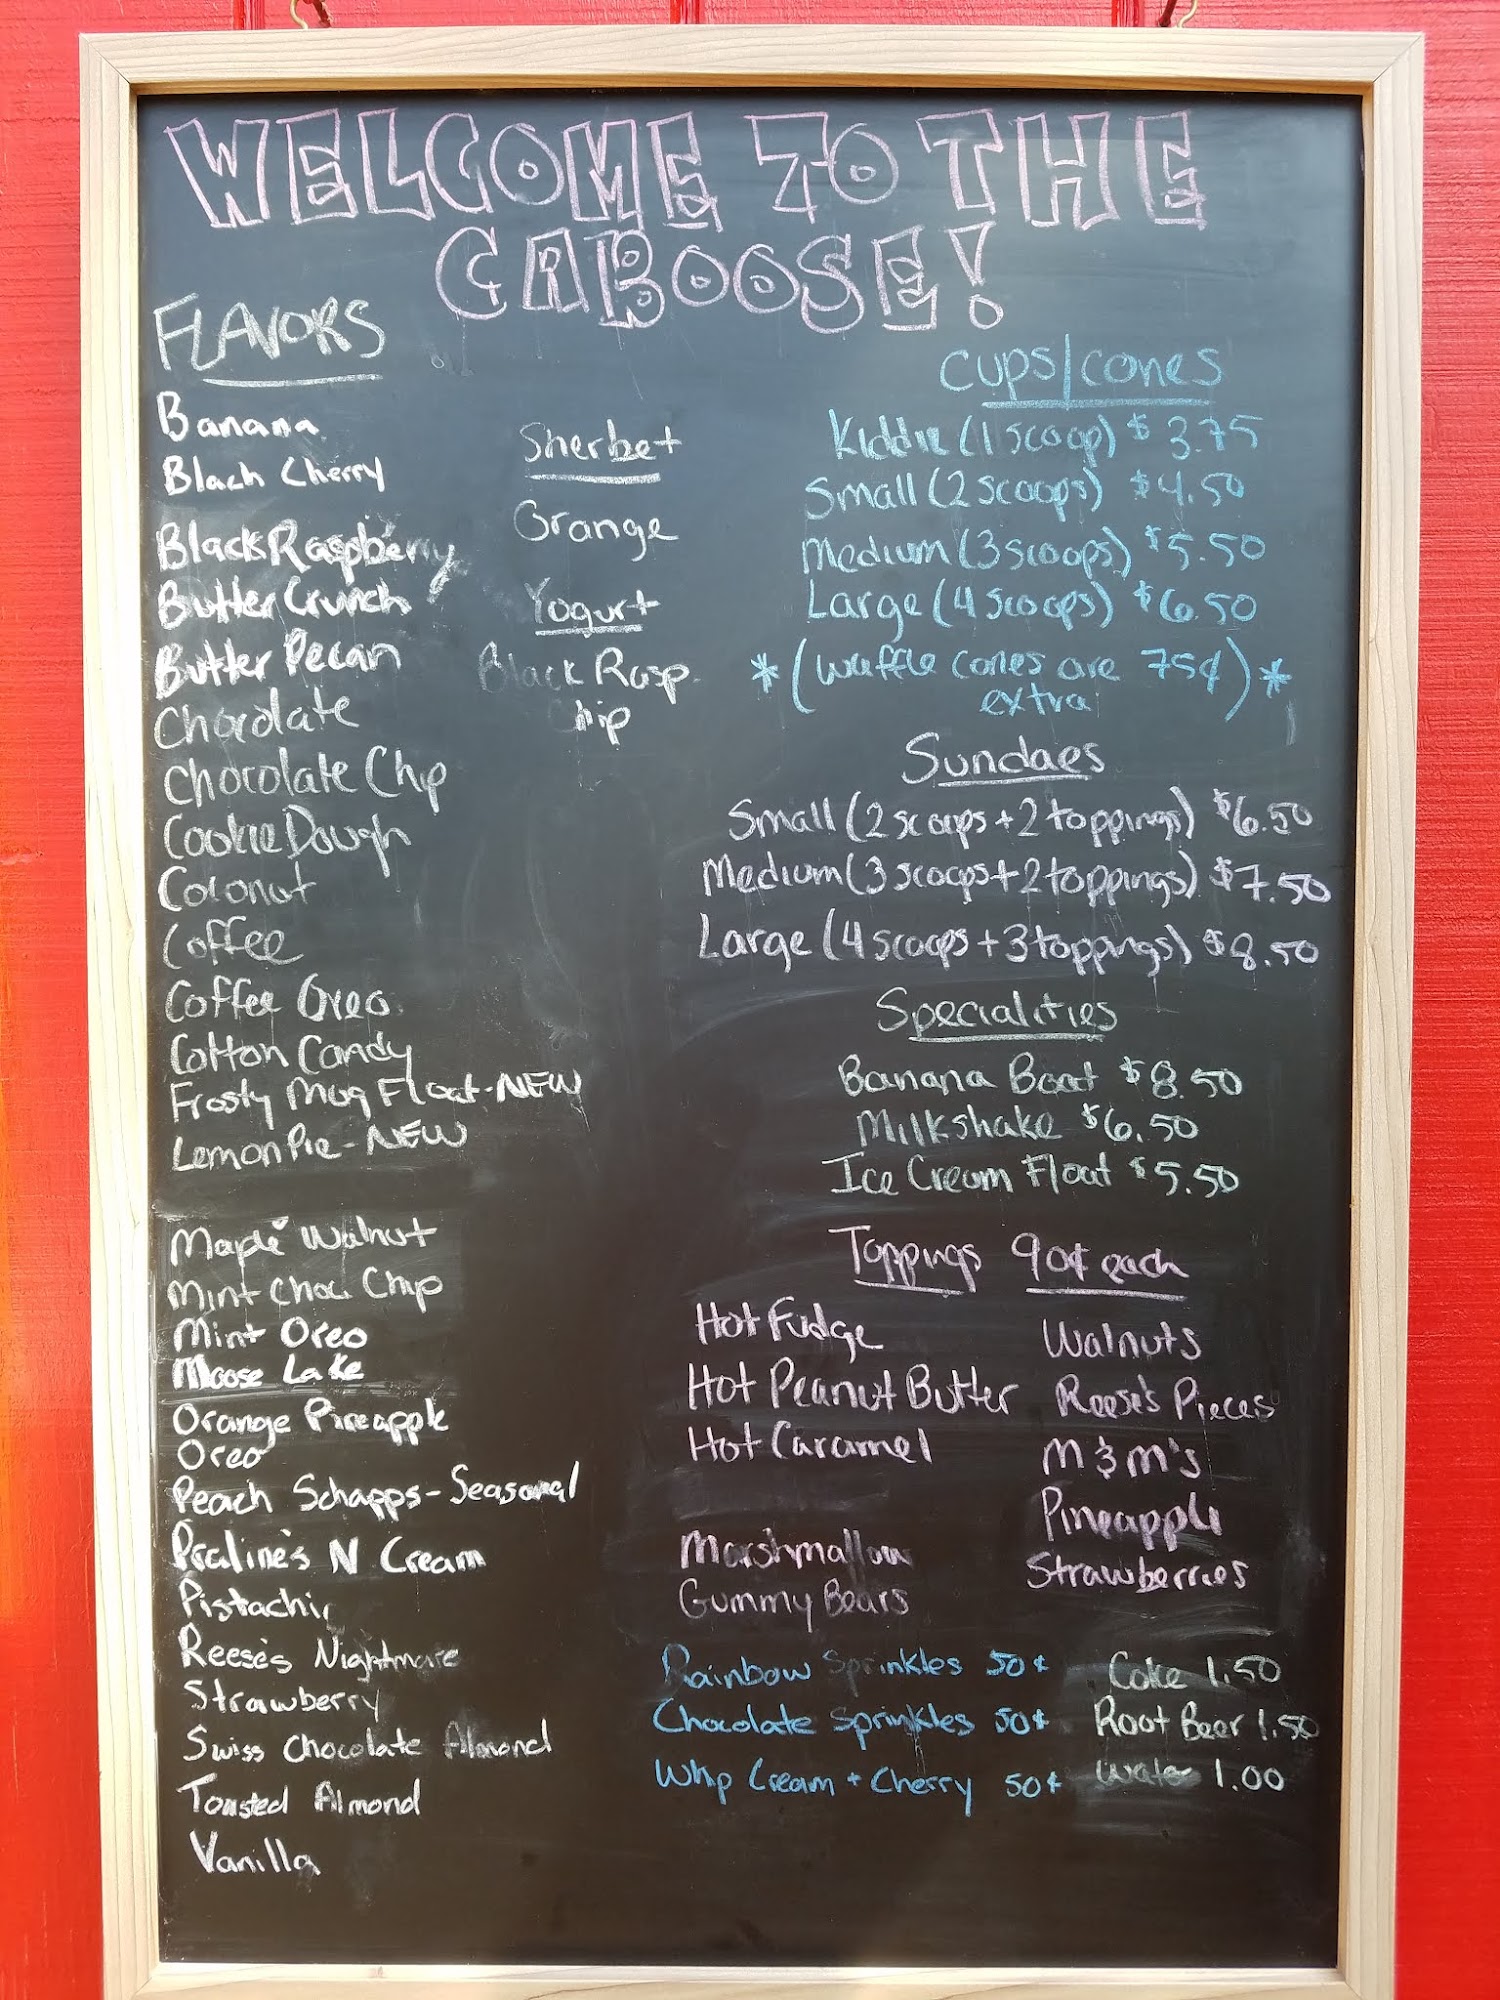 WELCOME TO THE
CABOOSE!
FLAVORS
Banana
Black Cherry
Black Raspberry
Butter Crunch
Butter Pecan
Chocolate
Chocolate Chip
Cookie Dough
Coconut
Coffee
Coffee Oreo
Cotton Candy
Frosty Mug Float-NEW
Lemon Pie-NEW
Maple Walnut
Mint Choc Chip
Mint Oreo
Moose Lake
Orange Pineapple
Oreo
Peach Schapps-Seasonal
Praline's N Cream
Pistachio
Reese's Nightmare
Strawberry
Swiss Chocolate Almond
Toasted Almond
Vanilla
Sherbet
Orange
Yogurt
Black Rasp.
Chip
Cups/Cones
Kiddie (1 scoop) $3.75
Small (2 scoops) $4.50
Medium (3 scoops) $5.50
Large (4 scoops) $6.50
*(waffle cones are 75¢)*
extra
Sundaes
Small (2 scoops+2 toppings) $6.50
Medium (3 scoops+2 toppings) $7.50
Large (4 scoops+3 toppings) $8.50
Specialities
Banana Boat $8.50
Milkshake $6.50
Ice Cream Float $5.50
Toppings 90¢ each
Hot Fudge
Hot Peanut Butter
Hot Caramel
Marshmallow
Gummy Bears
Walnuts
Reese's Pieces
M&M's
Pineapple
Strawberries
Rainbow Sprinkles 50¢
Chocolate Sprinkles 50¢
Whip Cream + Cherry 50¢
Coke 1.50
Root Beer 1.50
Water 1.00